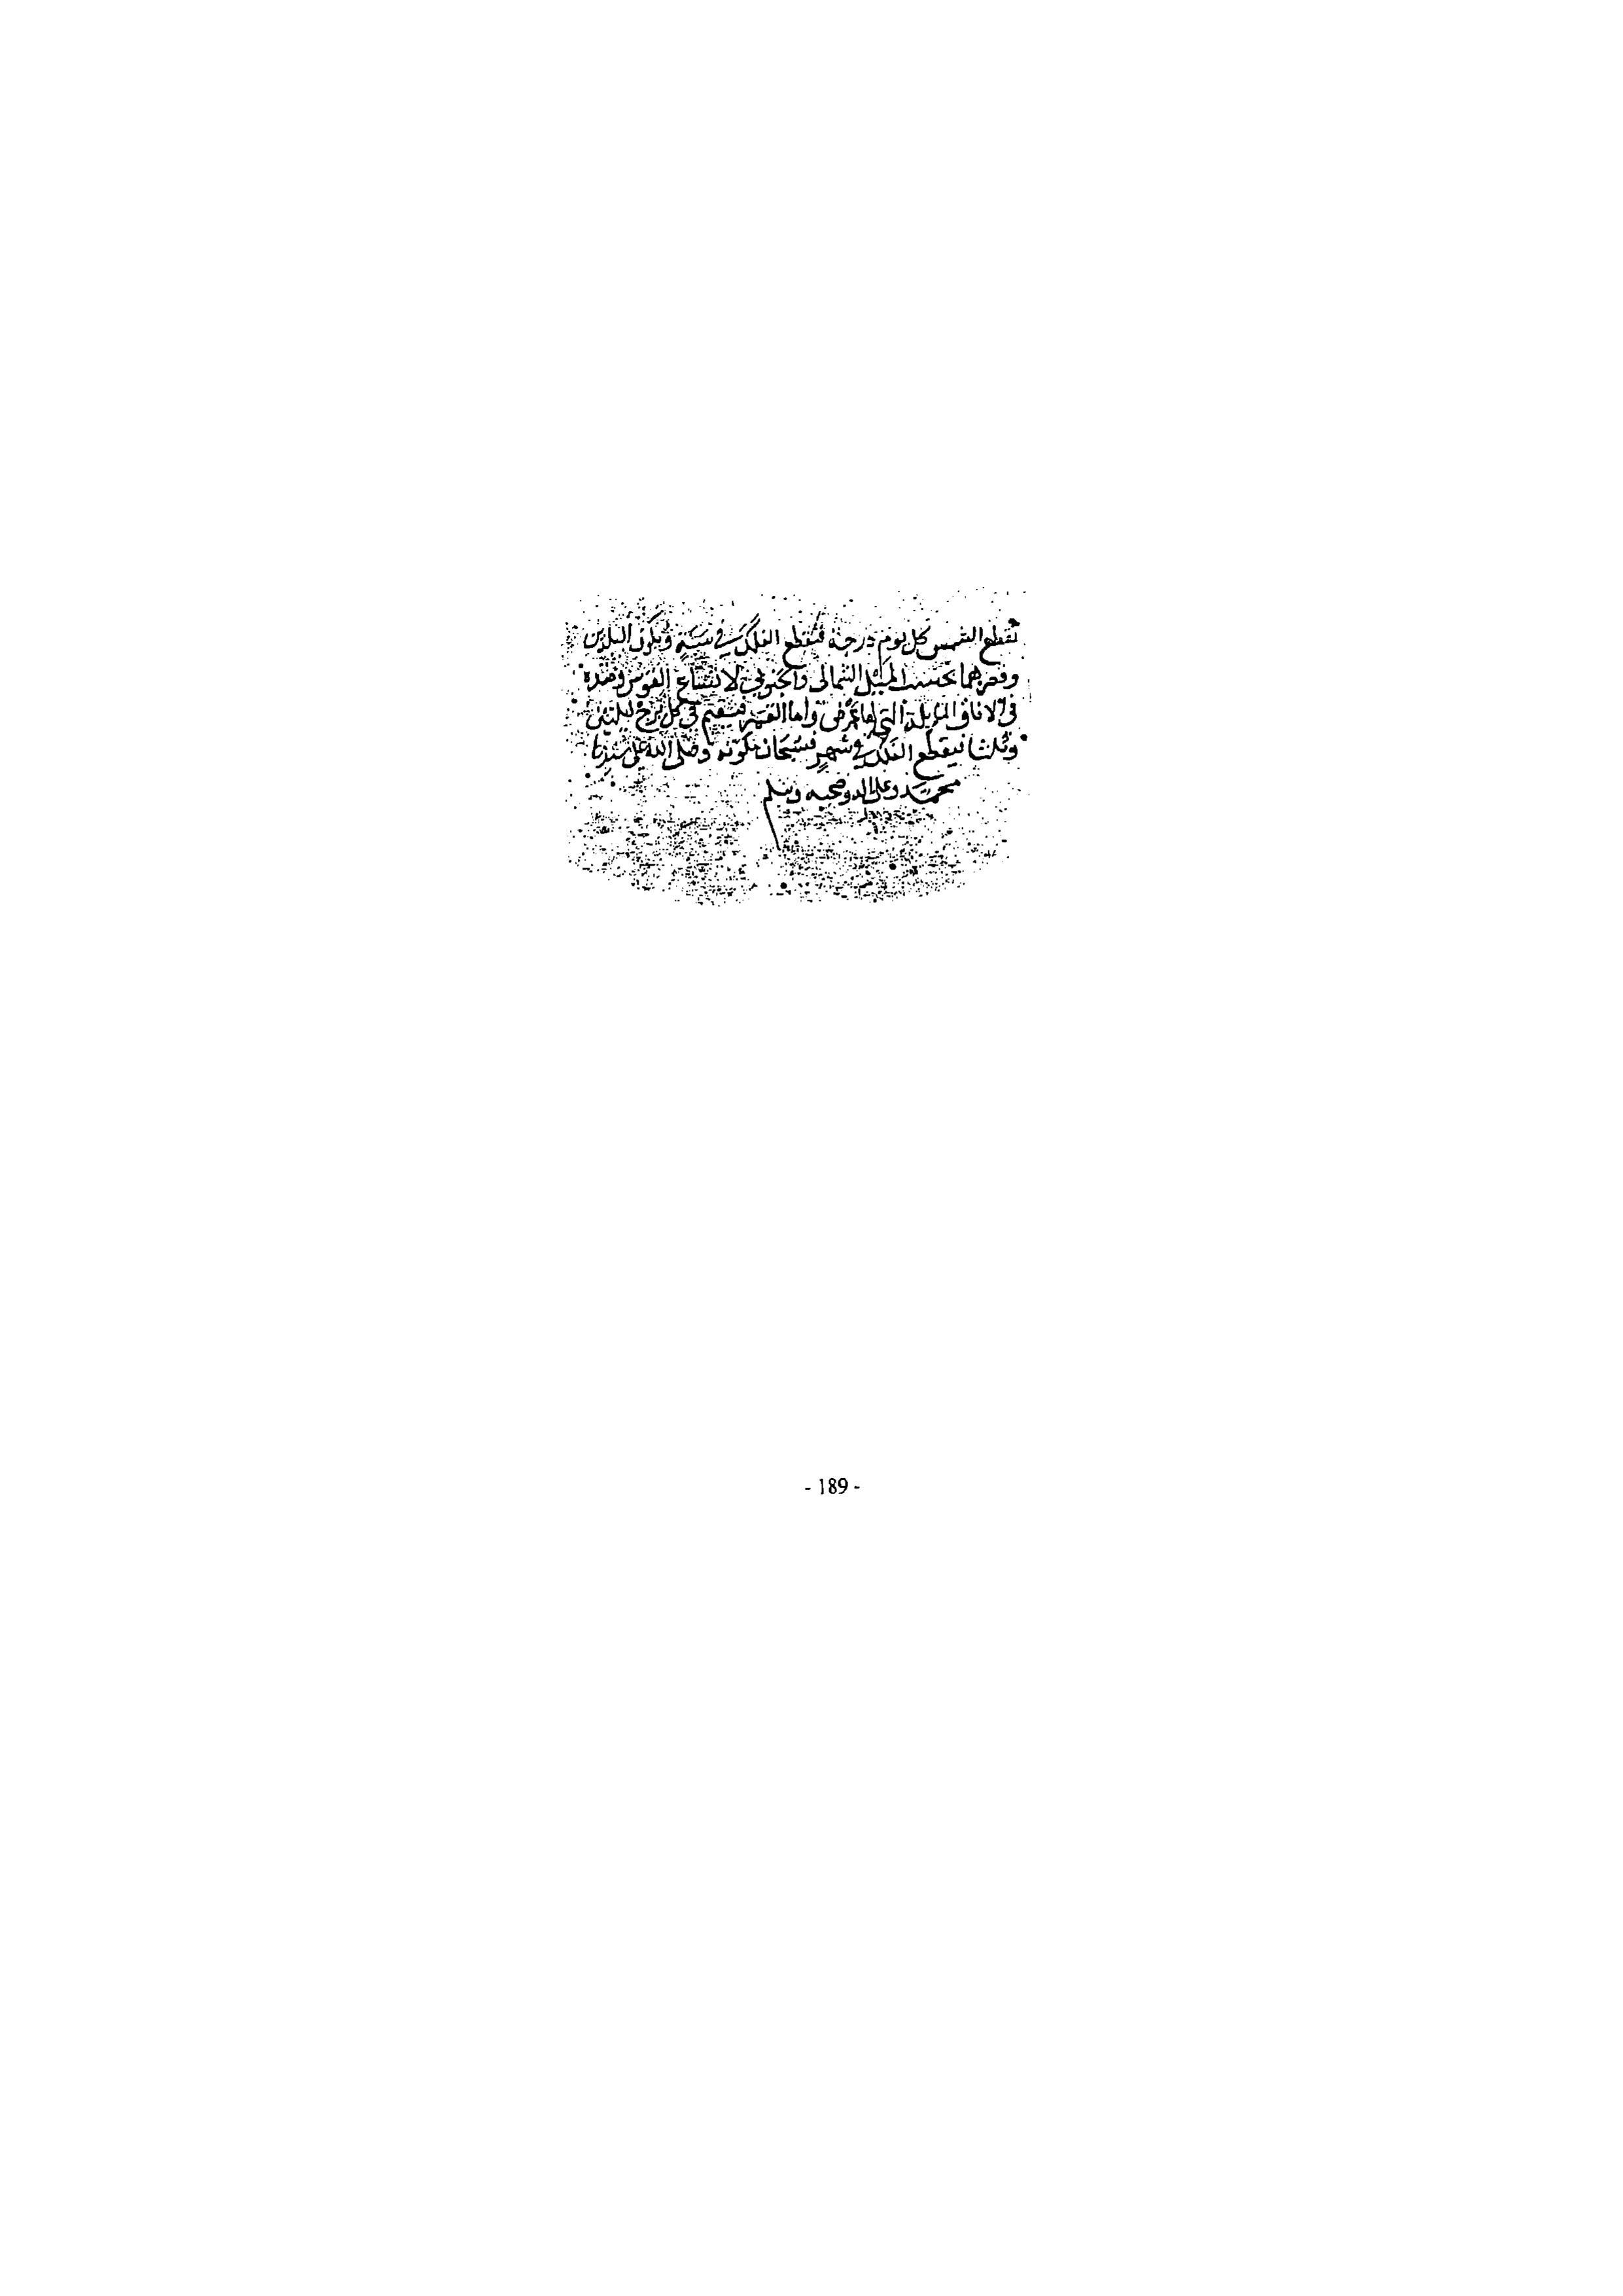 تقطع الشمس كل يوم درجة فتقطع الفلك في سنة ويكون
وقصرهما بحسب الميل الشمالي والجنوبي لاتساع القوس وضده
في الافاق التي لها عرض واما القمر فيقيم في كل برج ليلتين
وثلثا فيقطع الفلك في شهر فسبحان مكونه وصلى الله على سيدنا
محمد وعلى اله وصحبه وسلم
- 189 -